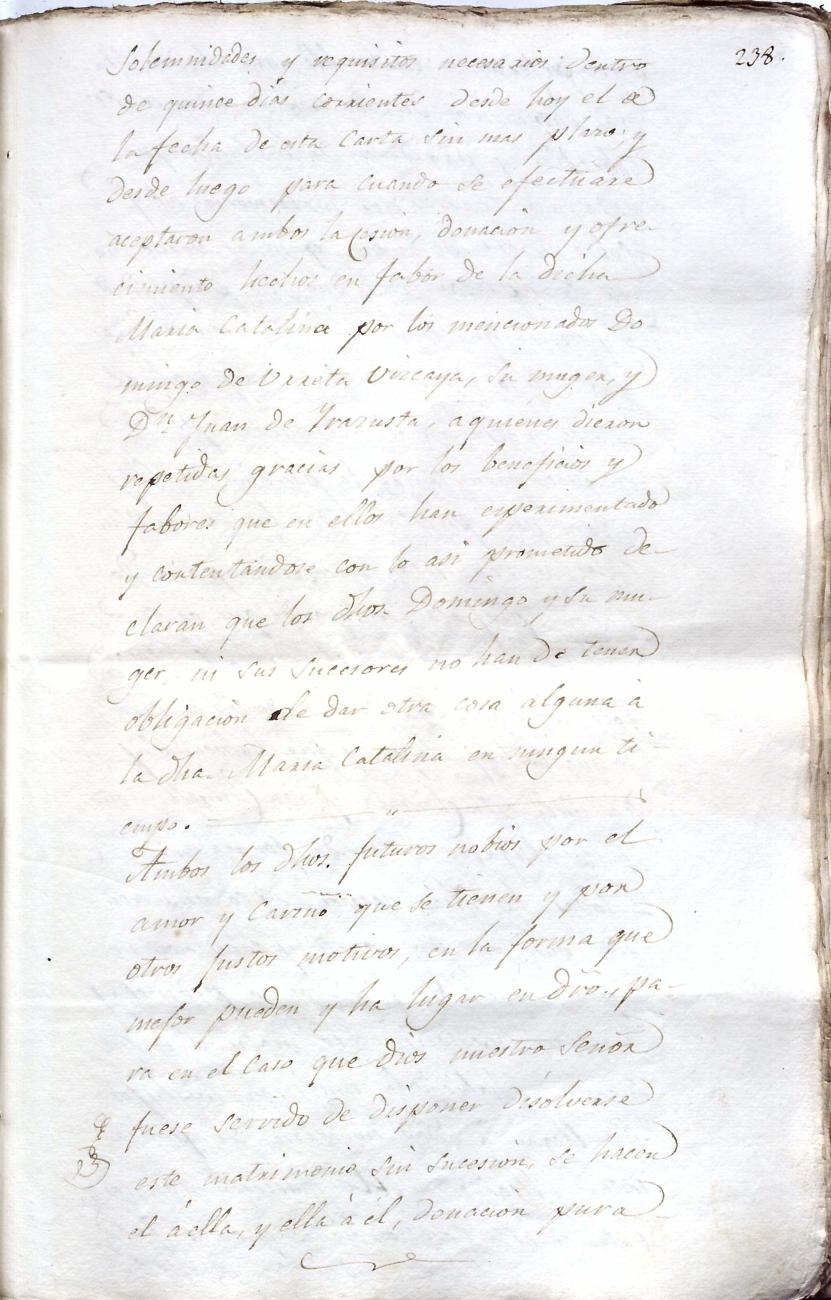 238.
Solemnidades y requisitos necesarios dentro
de quince dias corrientes desde hoy el de
la fecha de esta Carta sin mas plazo; y
desde luego para cuando se efectuare
aceptaron ambos la cesion, donacion y ofre-
cimiento hechos en fabor de la dicha
Maria Catalina por los mencionados Do
mingo de Urreta Vizcaya, su muger, y
Dn. Juan de Yrazusta, a quienes dieron
repetidas gracias por los beneficios y
fabores que en ellos han experimentado
y contentandose con lo asi prometido de-
claran que los dhos Domingo y su mu-
ger, ni sus sucesores no han de tener
obligacion de dar otra cosa alguna à
la dha. Maria Catalina en ningun ti-
empo.
Ambos los dhos. futuros nobios por el
amor y Cariño que se tienen y por
otros justos motivos, en la forma que
mejor pueden y ha lugar en dro., pa-
ra en el caso que Dios nuestro Señor
fuese servido de disponer disolverse
este matrimonio sin sucesion, se hacen
el à ella, y ella à èl, donacion pura